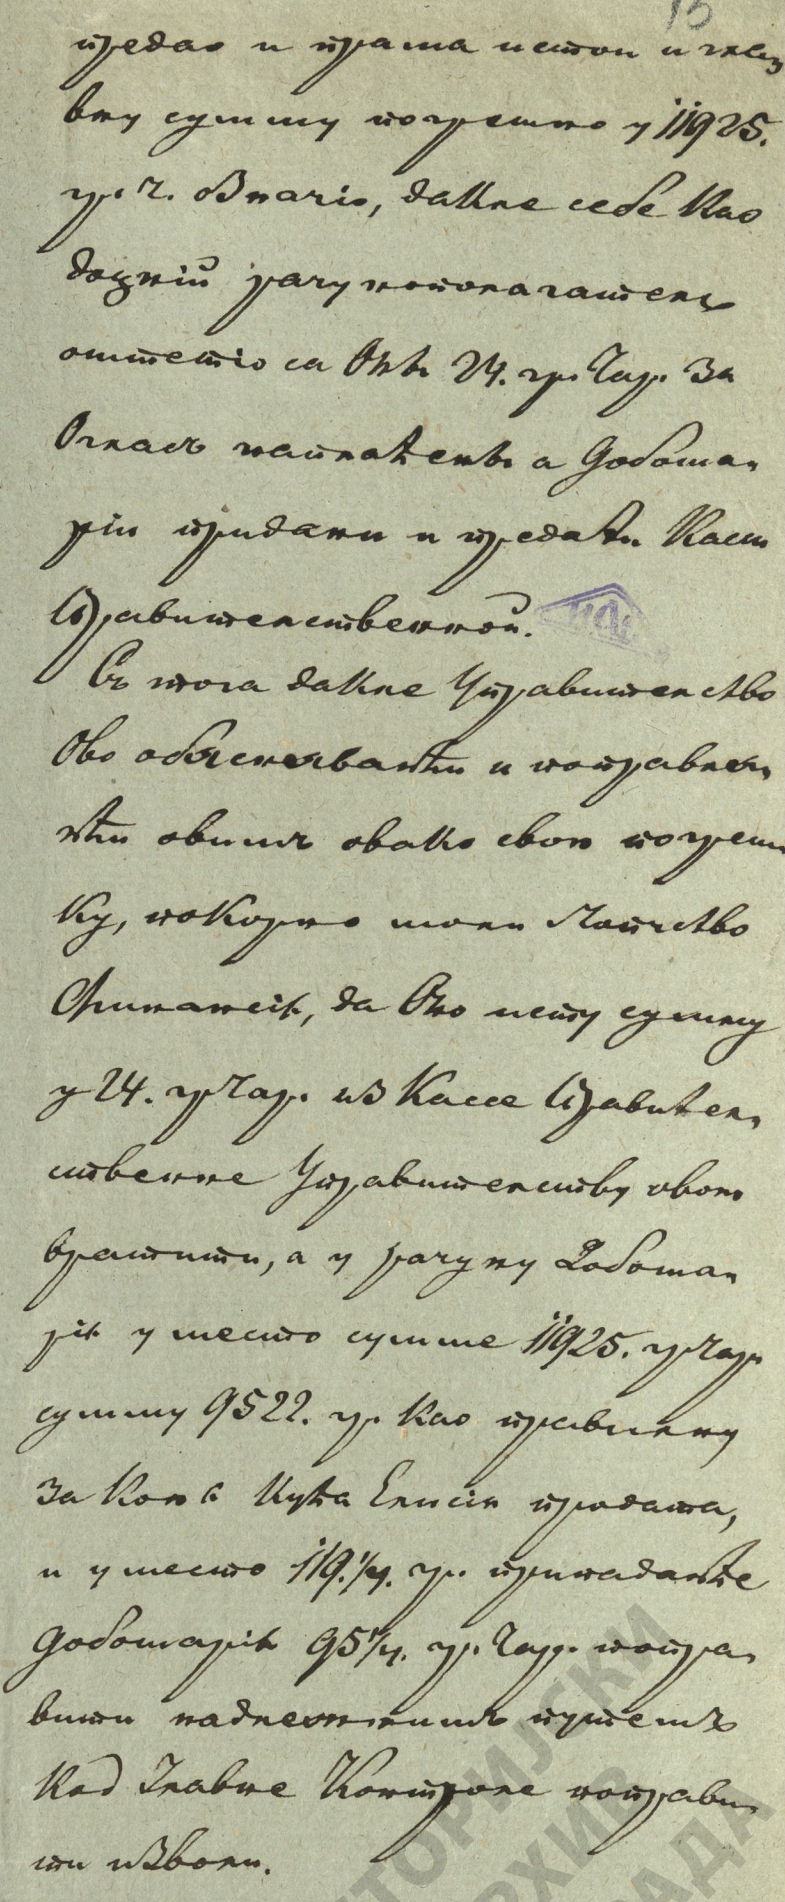 15
предао и прама истой и гла„
вну сумму погрешно у 11925.
гр. ч. означіо, дакле себе као
доцнiй рачунополагатель
оштетіо са Окѣ 24. гр. чар. за
огласъ наплаћенѣ а Добоша„
рiи придати и предаћи Касси
Правителственной.
Съ тога дакле Управителство
Ово обясняваюћи и поправля„
юћи овимъ овако свою погреш„
ку, покорно моли Попечство
Финансiе, да Ово исту сумму
у 24. гр чар. из Кассе Правител„
ствене Управителству овом
вратити, а у рачуну Добоша„
рiе у место сумме 11925. гр чар
сумму 9522. гр. као правилну
за кою є кућа Елисiи продата,
и у место 119.¼. гр. припадаюће
Добошарiе 95¼. гр. чар. попра„
вити надлежнимъ путемъ
код Главне Контроле поправи„
ти изволи.
ИСТОРИЈСКИ
АРХИВ
БЕОГРАДА